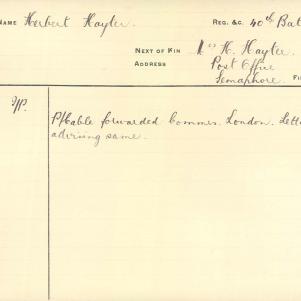 NAME Herbert Hayter. REG. &C. 40th Bat
NEXT OF KIN H. Hayter
ADDRESS Post Office
Semaphore. FI
P/Cable forwarded Commrs. London. Lett
advising same.